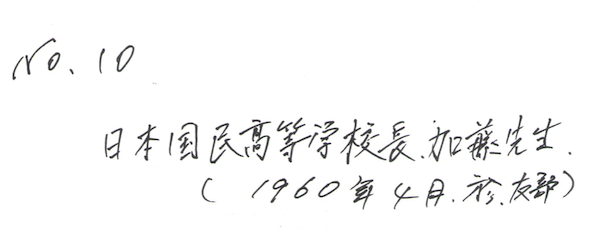 No. 10
日本国民高等学校長、加藤先生.
( 1960年4月. 於、友部)